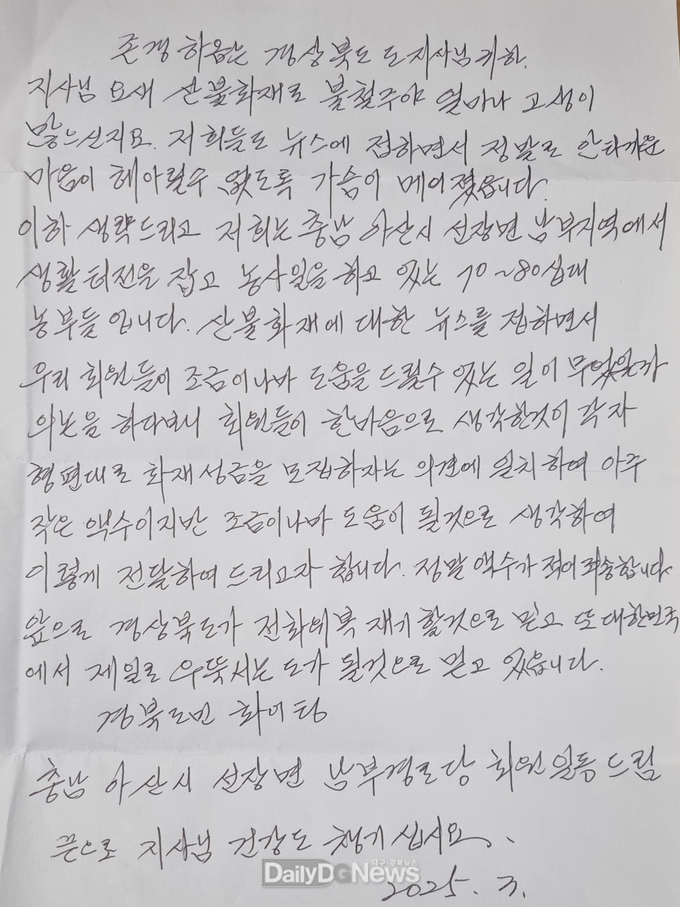 존경 하옵는 경상북도 도지사님 귀하.
지사님 요새 산불화재로 불철주야 얼마나 고생이
많으신지요. 저희들도 뉴스에 접하면서 정말로 안타까운
마음이 헤아릴수 없도록 가슴이 메어졌읍니다.
이하 생략드리고 저희는 충남 아산시 선장면 남부지역에서
생활터전을 잡고 농사일을 하고 있는 70~80십대
농부들 입니다. 산불화재에 대한 뉴스를 접하면서
우리 회원들이 조금이나마 도움을 드릴수 있는 일이 무엇일까
의논을 하다보니 회원들이 한마음으로 생각한것이 각자
형편대로 화재성금을 모집하자는 의견에 일치하여 아주
작은 액수이지만 조금이나마 도움이 될것으로 생각하여
이렇게 전달하여 드리고자 합니다. 정말 액수가 적어 죄송합니다
앞으로 경상북도가 전화위복 재기할것으로 믿고 또 대한민국
에서 제일로 우뚝서는 도가 될것으로 믿고 있읍니다.
경북도민 화이팅
충남 아산시 선장면 남부경로당 회원일동 드림
끝으로 지사님 건강도 챙기십시요.
대구·경북뉴스
DailyDGNews
2025. 3.